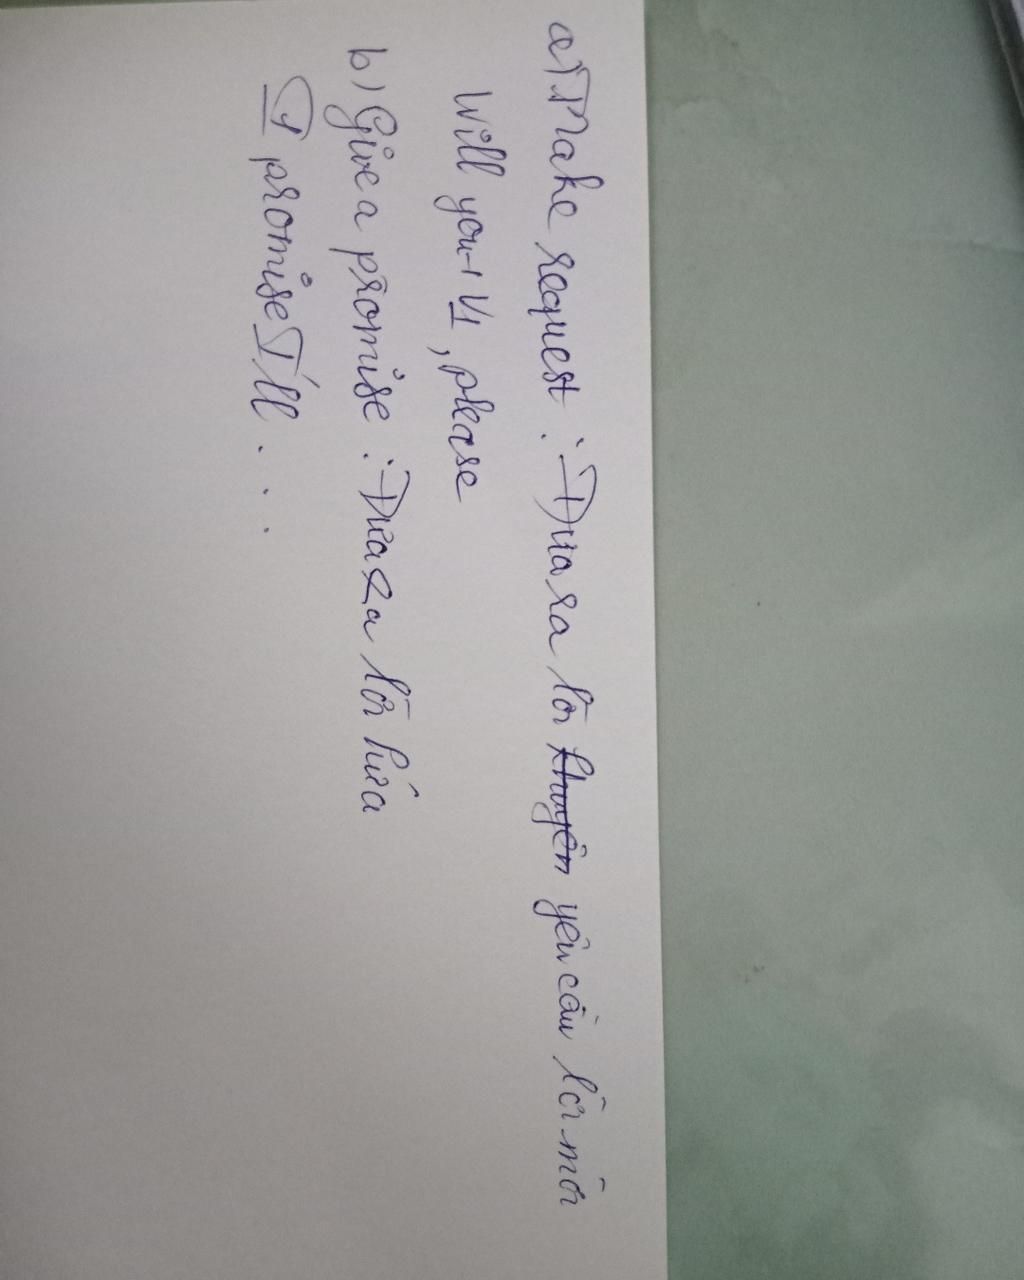 a) Make request : Đưa ra lời khuyên yêu cầu lời mời
Will you + V1, please
b) Give a promise : Đưa ra lời hứa
I promise I'll . . .